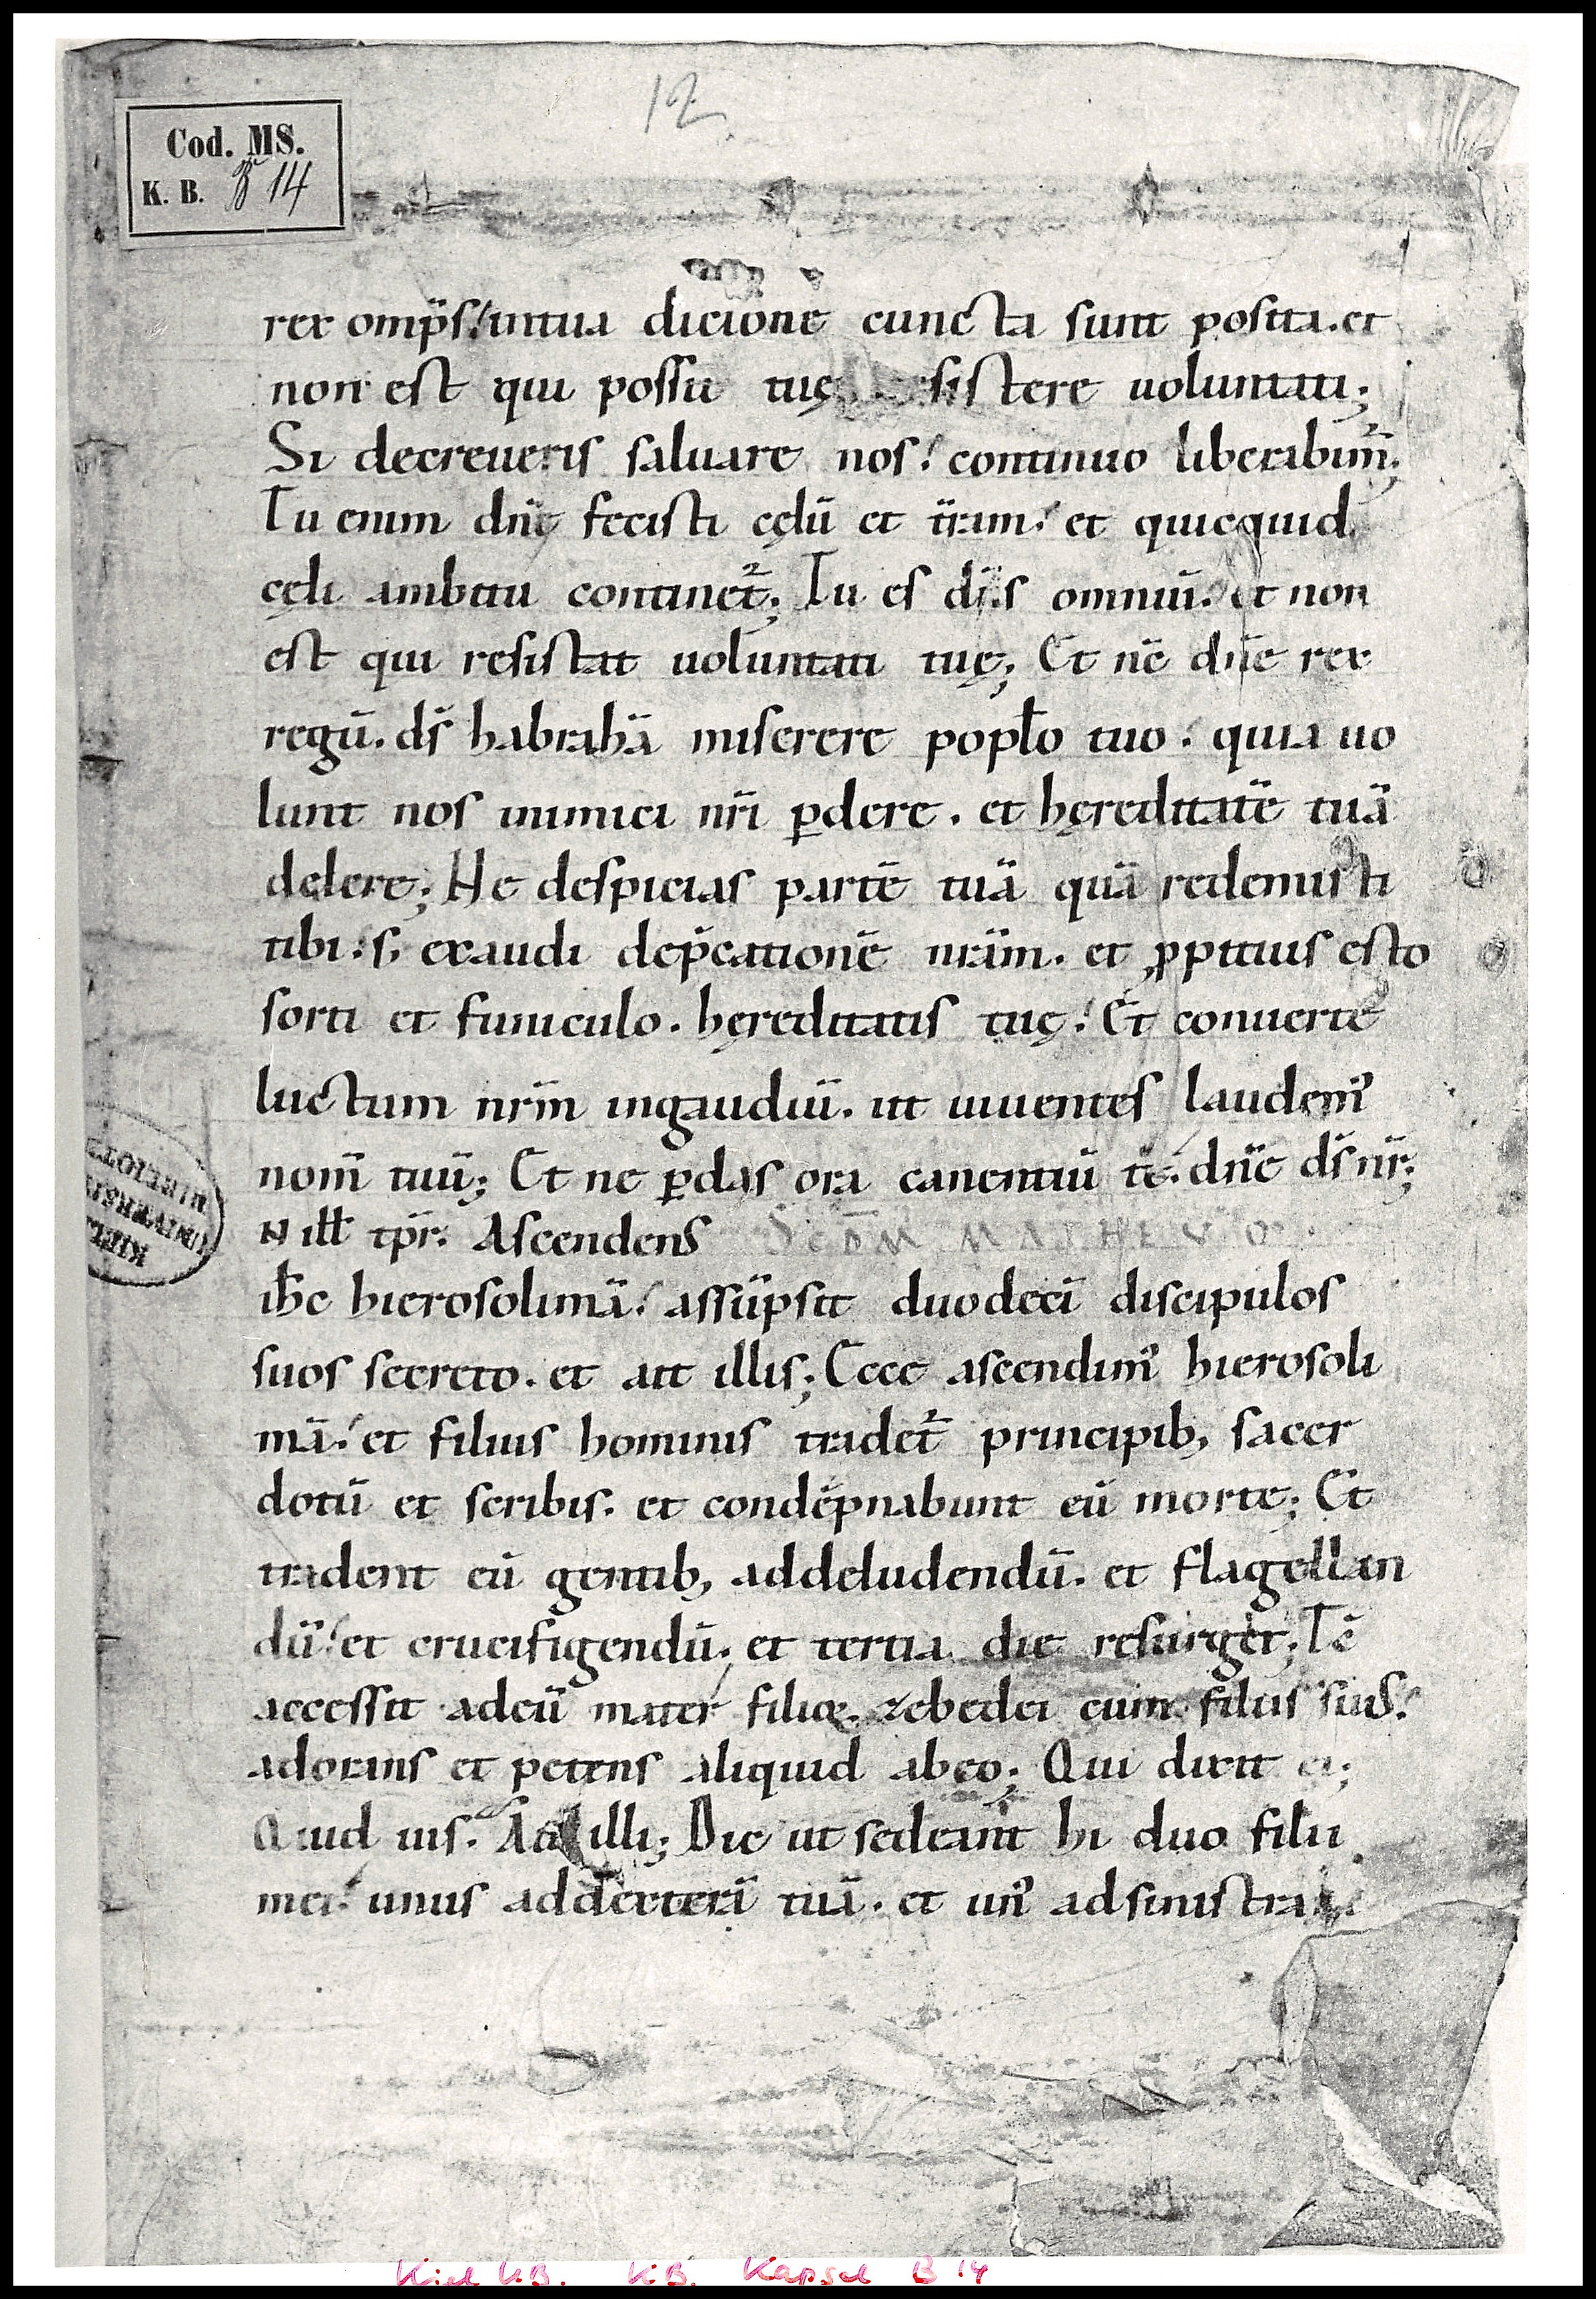 12
Cod. MS.
K. B. B 14
rex omp̄s. intua dicione cuncta sunt posita. et
non est qui possit tuę sistere uoluntati;
Si decreueris saluare nos. continuo liberabim̄;
Tu enim dn̄e fecisti cęlū et t̄ram. et quicquid
cęli ambitu continet̄; Tu es dn̄s omniū. et non
est qui resistat uoluntati tuę; Et nc̄ dn̄e rex
regū. ds̄ habrahā miserere popło tuo. quia uo
lunt nos inimici nr̄i ꝑdere. et hęreditatē tuā
delere; Ne despicias partē tuā quā redemisti
tibi. s; exaudi dep̄cationē nr̄am. et ꝓpitius esto
sorti et funiculo. hęreditatis tuę. Et conuerte
luctum nr̄m ingaudiū. ut uiuentes laudem᾽
nom̄ tuū; Et ne ꝑdas ora canentiū te. dn̄e ds̄ nr̄;
N ill̄ tp̄r. Ascendens SCDM MATHEVO.
ih̄c hierosolimā. assūpsit duodecī discipulos
suos secreto. et ait illis; Ecce ascendim᾽ hierosoli
mā. et filius hominis tradet̄ principib; sacer
dotū et scribis. et condēpnabunt eū morte; Et
tradent eū gentib; addeludendū. et flagellan
dū. et crucifigendū. et tertia die resurget; Tc̄
accessit adeū mater filiorꝫ zebedei cum filiis suis.
adorans et petens aliquid abeo; Qui dixit ei;
Quid uis. Ait illi; Dic ut sedeant hi duo filii
mei. unus addexterā tuā. et un᾽ adsinistrā
BIBLIOTE
UNIVERSIT
KIEL
Kiel UB. K.B. Kapsel B 14